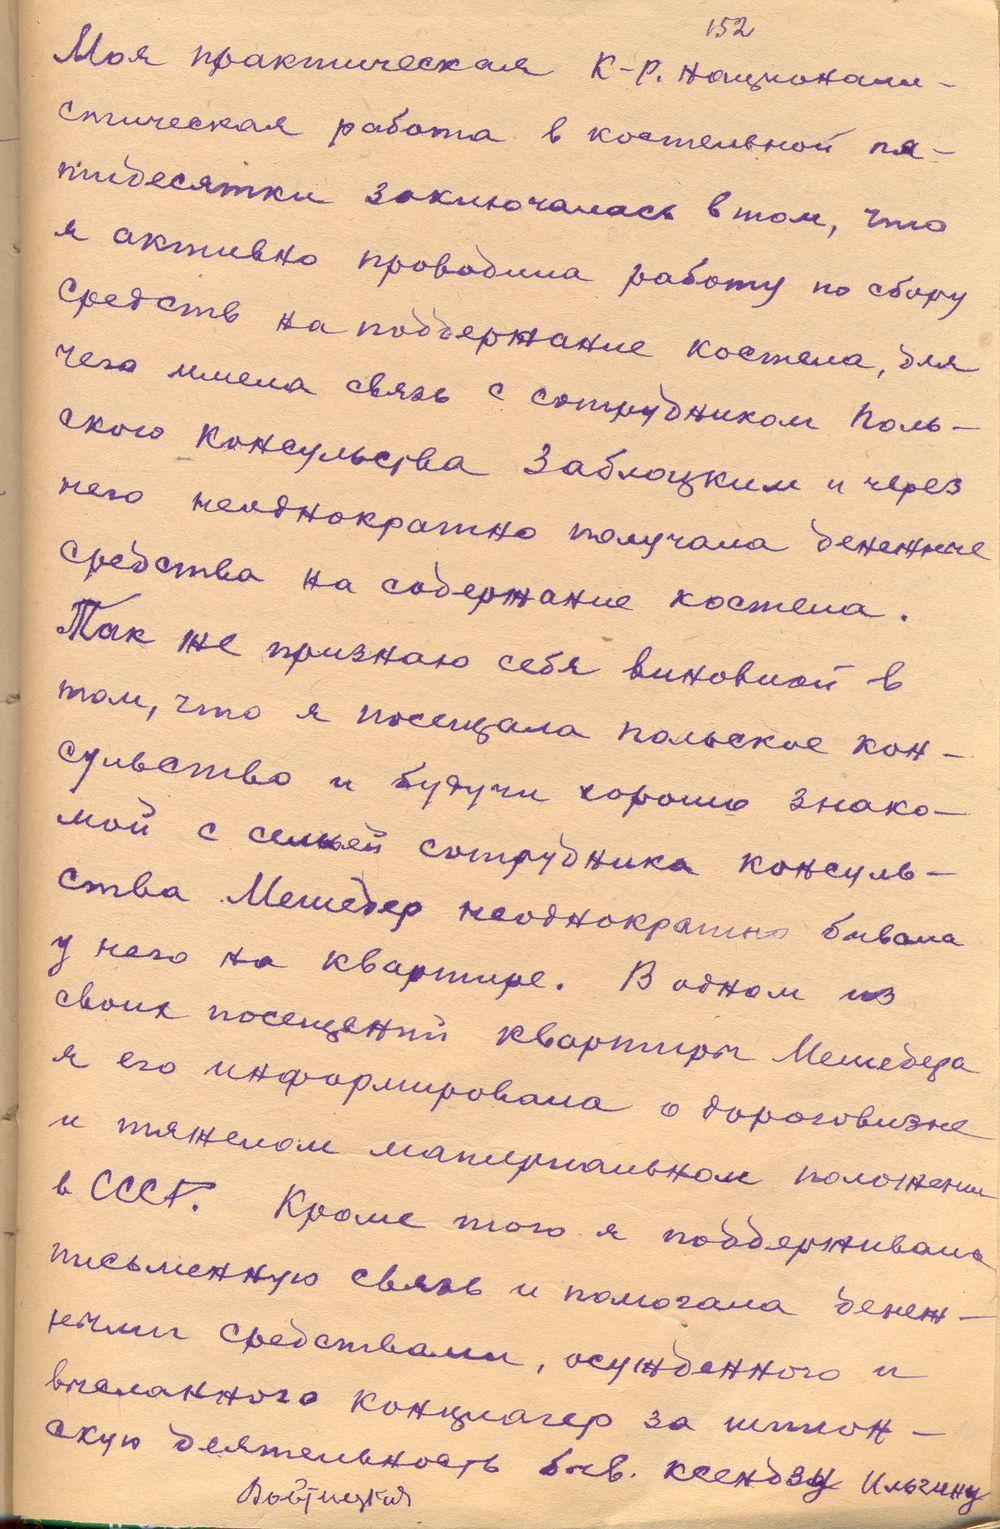 152
Моя практическая к-р. национали-
стическая работа в костельной пя-
тидесятки заключалась в том, что
я активно проводила работу по сбору
средств на поддержание костела, для
чего имела связь с сотрудником Поль-
ского консульства Заблоцким и через
него неоднократно получала денежные
средства на содержание костела.
Так же признаю себя виновной в
том, что я посещала польское кон-
сульство и будучи хорошо знако-
мой с семьей сотрудника консуль-
ства Мешебер неоднократно бывала
у него на квартире. В одном из
своих посещений квартиры Мешебера
я его информировала о дороговизне
и тяжелом материальном положении
в СССР. Кроме того я поддерживала
письменную связь и помогала денеж-
ными средствами, осужденного и
высланного концлагер за шпион-
скую деятельность быв. ксендзу Ильгину
Войтицкая